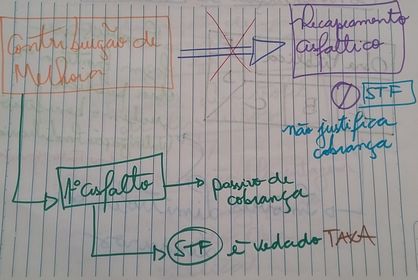 Contribuição de
Melhoria
Recapeamento
asfáltico
STF
não justifica
cobrança
1º asfalto
passivo de
cobrança
STF é vedado TAXA